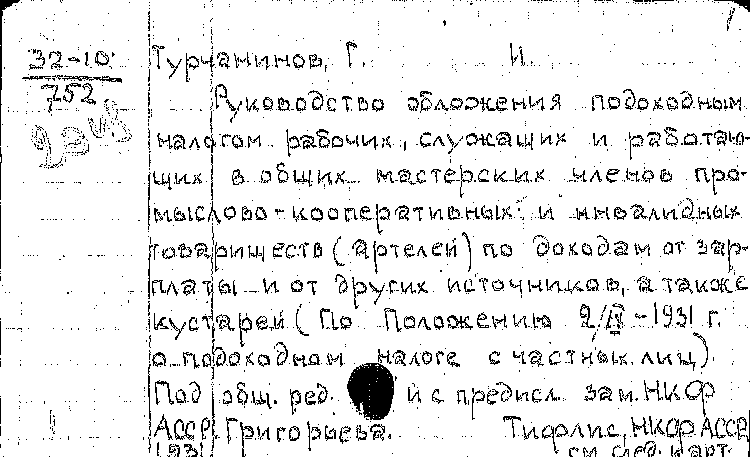 32-10 Турчанинов, Г. И.
752
Руководство обложения подоходным
налогом рабочих, служащих и работаю-
щих в общих мастерских членов про-
мыслово-кооперативных и инвалидных
товариществ (артелей) по доходам от зар-
платы и от других источников, а также
кустарей (По Положению 2/IV-1931 г.
о подоходном налоге с частных лиц)
Под общ. ред. и с предисл. зам. НКФ
АССР Григорьева. Тифлис, НКФ АССР
1931 см. след. карт.